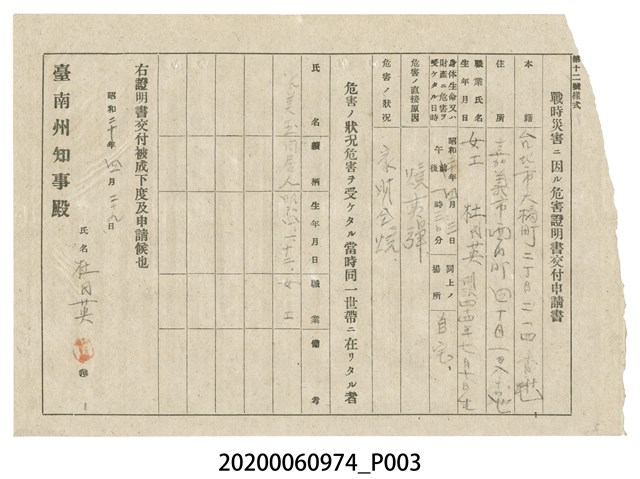 第十二號樣式
戰時災害ニ因ル危害證明書交付申請書
本籍 台北市大橋町二丁目二四番地
住所 嘉義市西門町四丁目
職業氏名 女工 杜月英
生年月日 明治四年七月十日生
身体生命又ハ財產ニ危害ヲ受ケタル日時 昭和二十年四月三日 午前後一時三〇分
同上ノ場所 自宅
危害ノ直接原因 燒夷彈
危害ノ狀況 家財全燒
危害ノ狀況危害ヲ受ケタル當時同一世帶ニ在リタル者
氏名 續柄 生年月日 職業 備考
同居人 明治二十三 女工
右證明書交付被成下度及申請候也
昭和二十年四月二十九日
氏名 杜月英
臺南州知事殿
20200060974_P003